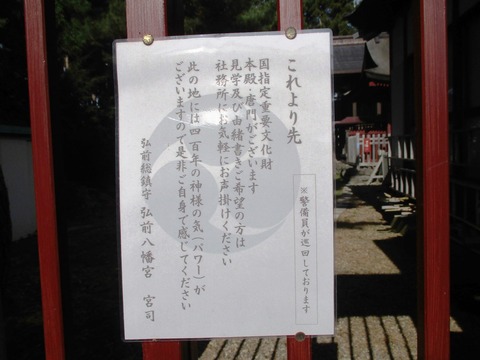 これより先
国指定重要文化財
本殿・唐門がございます
見学及び由緒書きご希望の方は
社務所にお気軽にお声掛けください
此の地には四百年の神様の気(パワー)が
ございますので是非ご自身で感じてください
弘前総鎮守 弘前八幡宮 宮司
※警備員が巡回しております